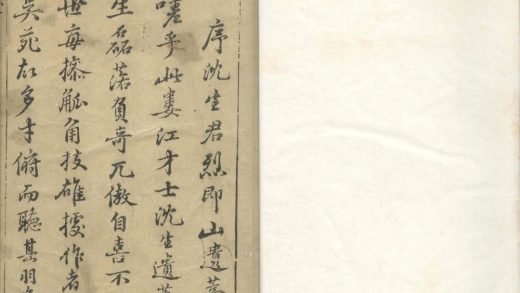 序沈生君烈即山遺藁
嗟乎此婁江才士沈生遺藁
生磊落負奇兀傲自喜不
世每搽觚角技雄據作者
吳苑故多才俯而聽甚羽